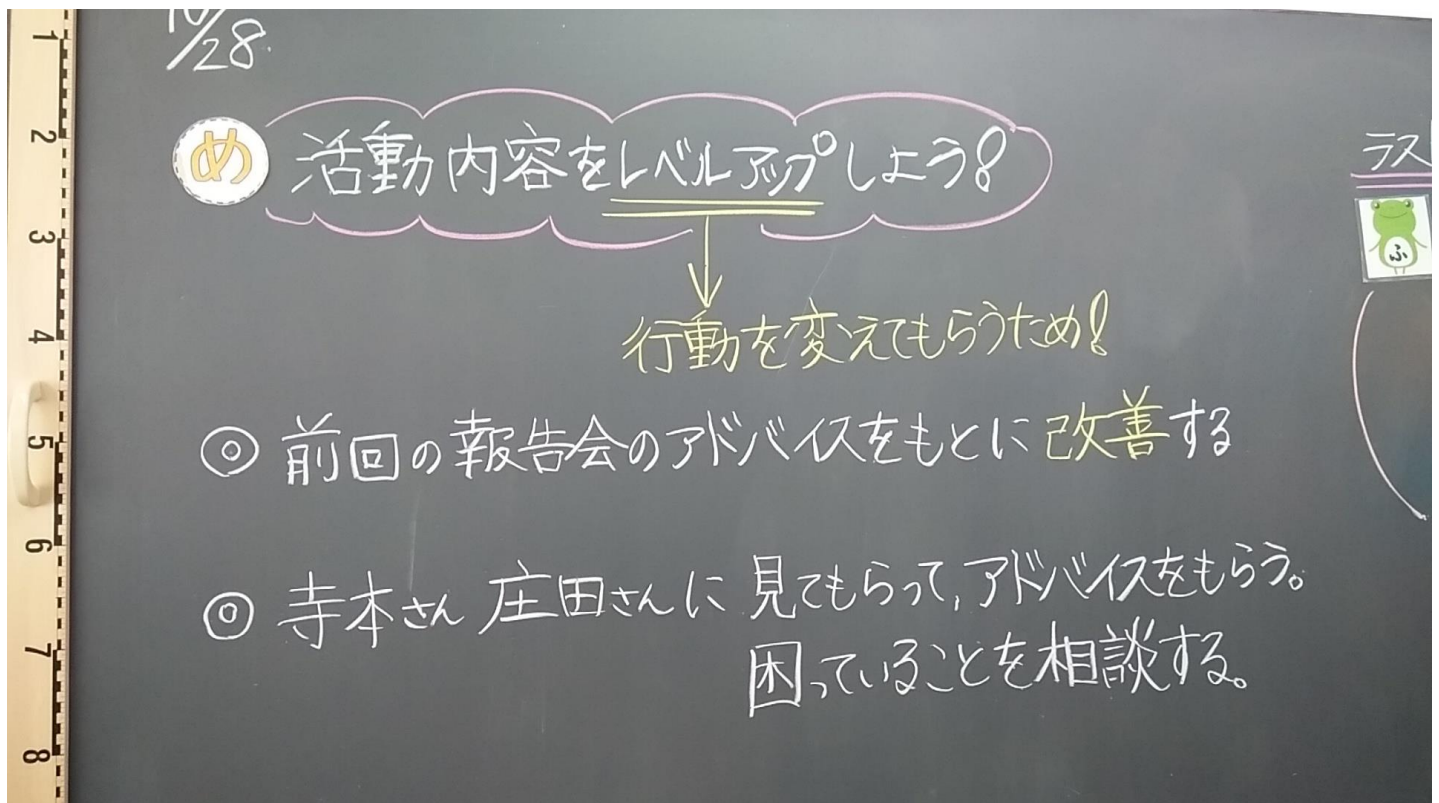 10/28.
め 活動内容をレベルアップしよう!
行動を変えてもらうため!
◎ 前回の報告会のアドバイスをもとに改善する
◎ 寺本さん 庄田さんに 見てもらって,アドバイスをもらう。
困っていることを相談する。
ラス
ふ
1
2
3
4
5
6
7
8